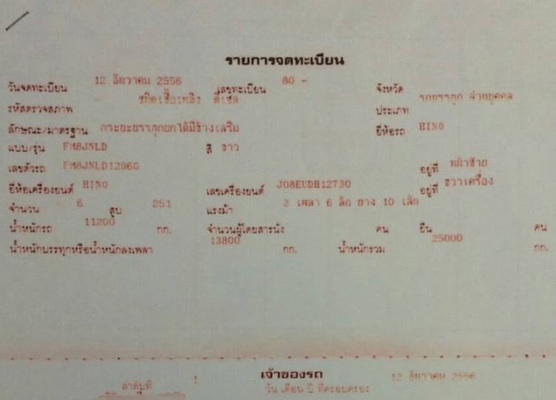 รายการจดทะเบียน
วันจดทะเบียน 12 ธันวาคม 2556 เลขทะเบียน 80 - จังหวัด
รหัสตรวจสภาพ ชนิดเชื้อเพลิง ดีเซล ประเภท รถบรรทุก ส่วนบุคคล
ลักษณะ/มาตรฐาน กระบะบรรทุกยกได้มีข้างเสริม ยี่ห้อรถ HINO
แบบ/รุ่น FM8JNLD สี ขาว
เลขตัวรถ FM8JNLD12960 อยู่ที่ หน้าซ้าย
ยี่ห้อเครื่องยนต์ HINO เลขเครื่องยนต์ J08EUDH12730 อยู่ที่ ขวาเครื่อง
จำนวน 6 สูบ 251 แรงม้า 3 เพลา 6 ล้อ ยาง 10 เส้น
น้ำหนักรถ 11200 กก. จำนวนผู้โดยสารนั่ง คน ยืน คน
น้ำหนักบรรทุกหรือน้ำหนักลงเพลา 13800 กก. น้ำหนักรวม 25000 กก.
เจ้าของรถ
ลำดับที่ 1 วัน เดือน ปี ที่ครอบครอง 12 ธันวาคม 2556